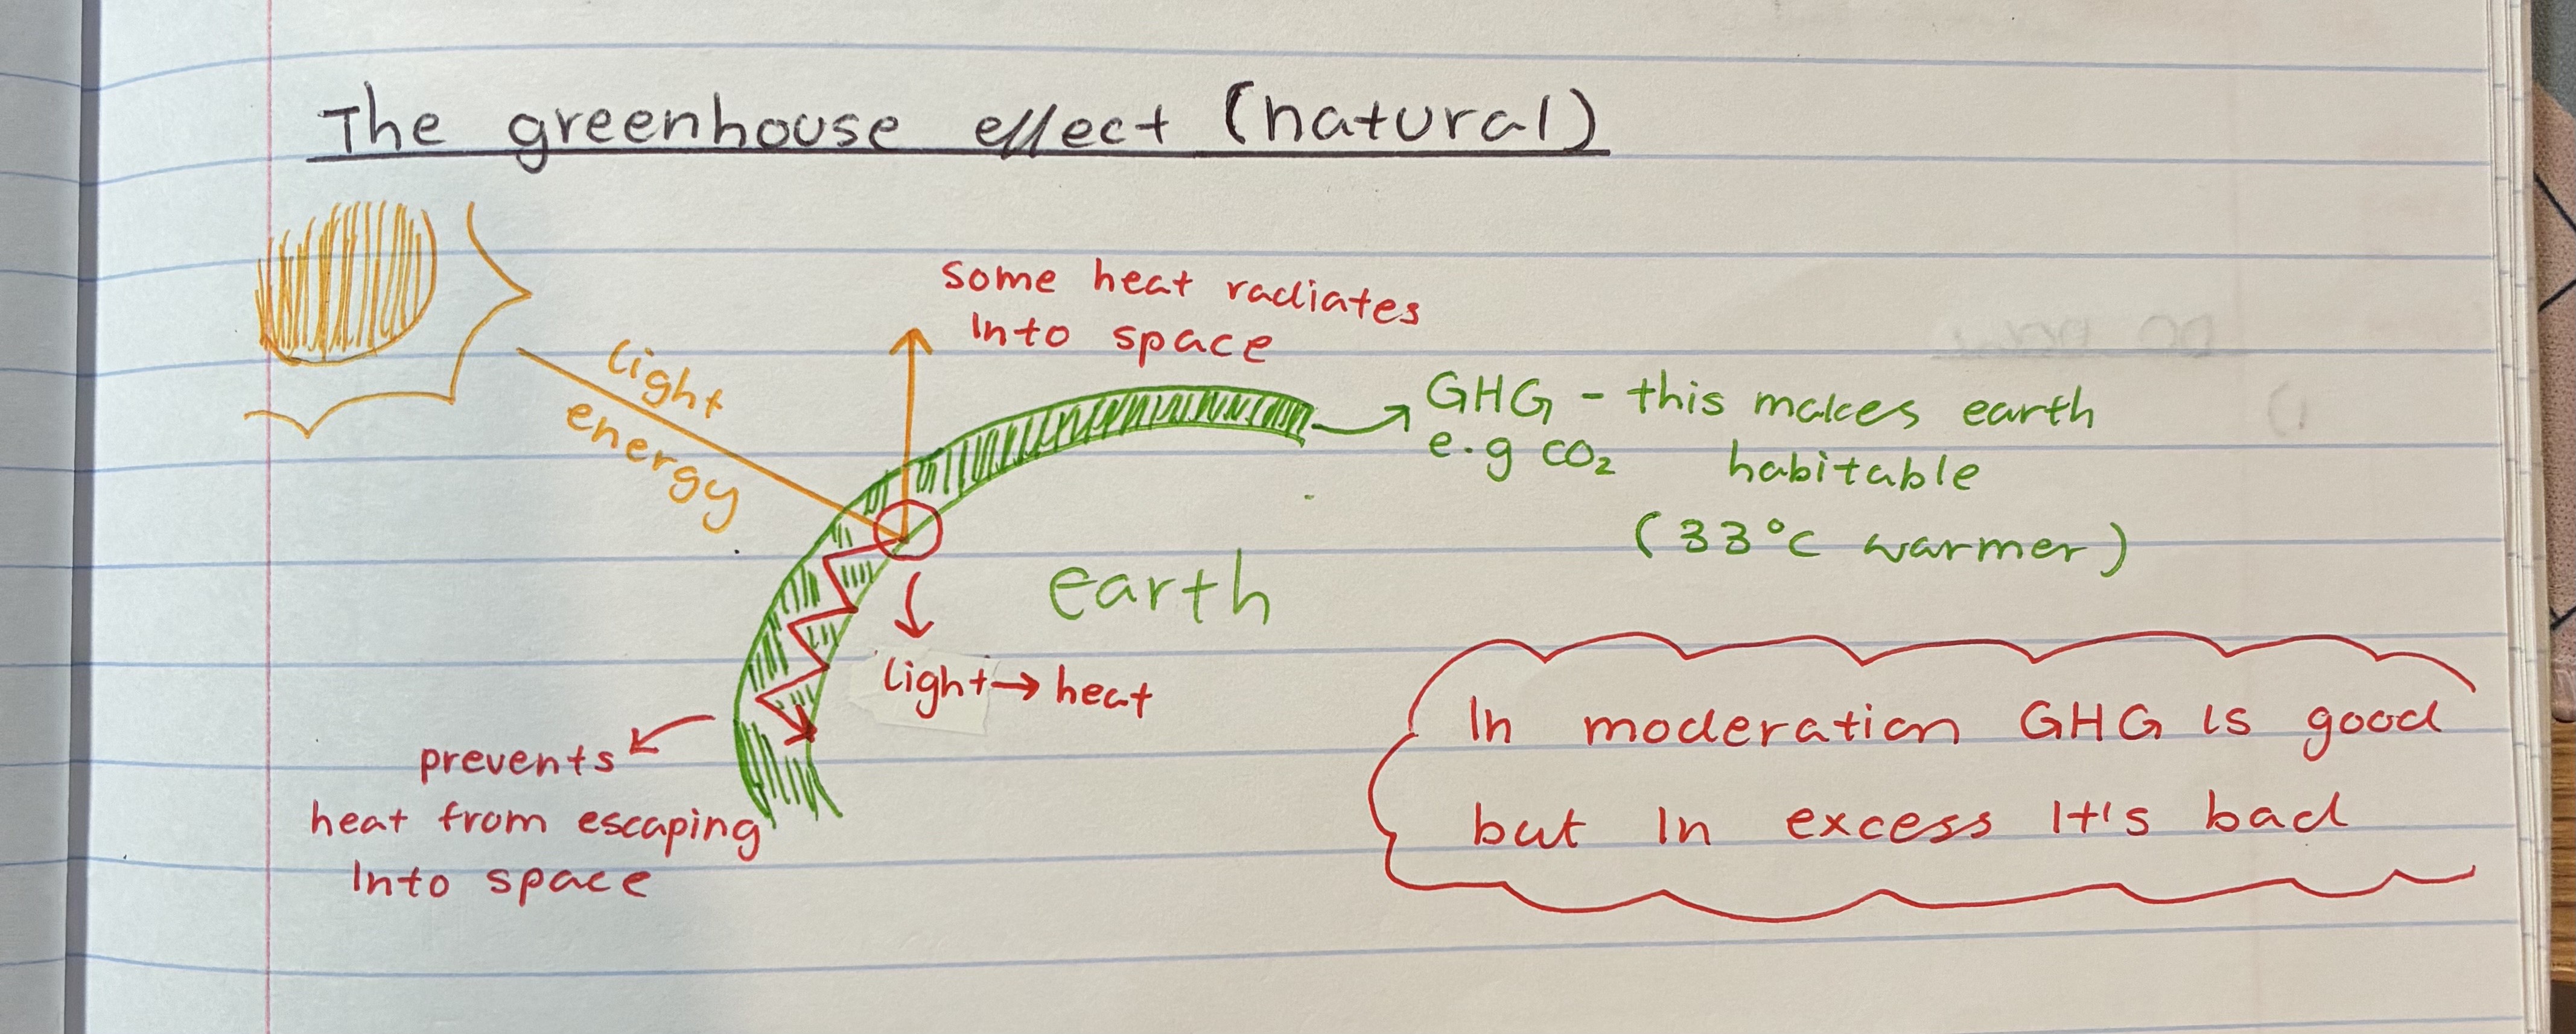 The greenhouse effect (natural)
some heat radiates
Into space
light
energy
GHG - this makes earth
e.g CO₂ habitable
(33°C warmer)
earth
light→ heat
prevents
heat from escaping
Into space
In moderation GHG is good
but In excess It's bad